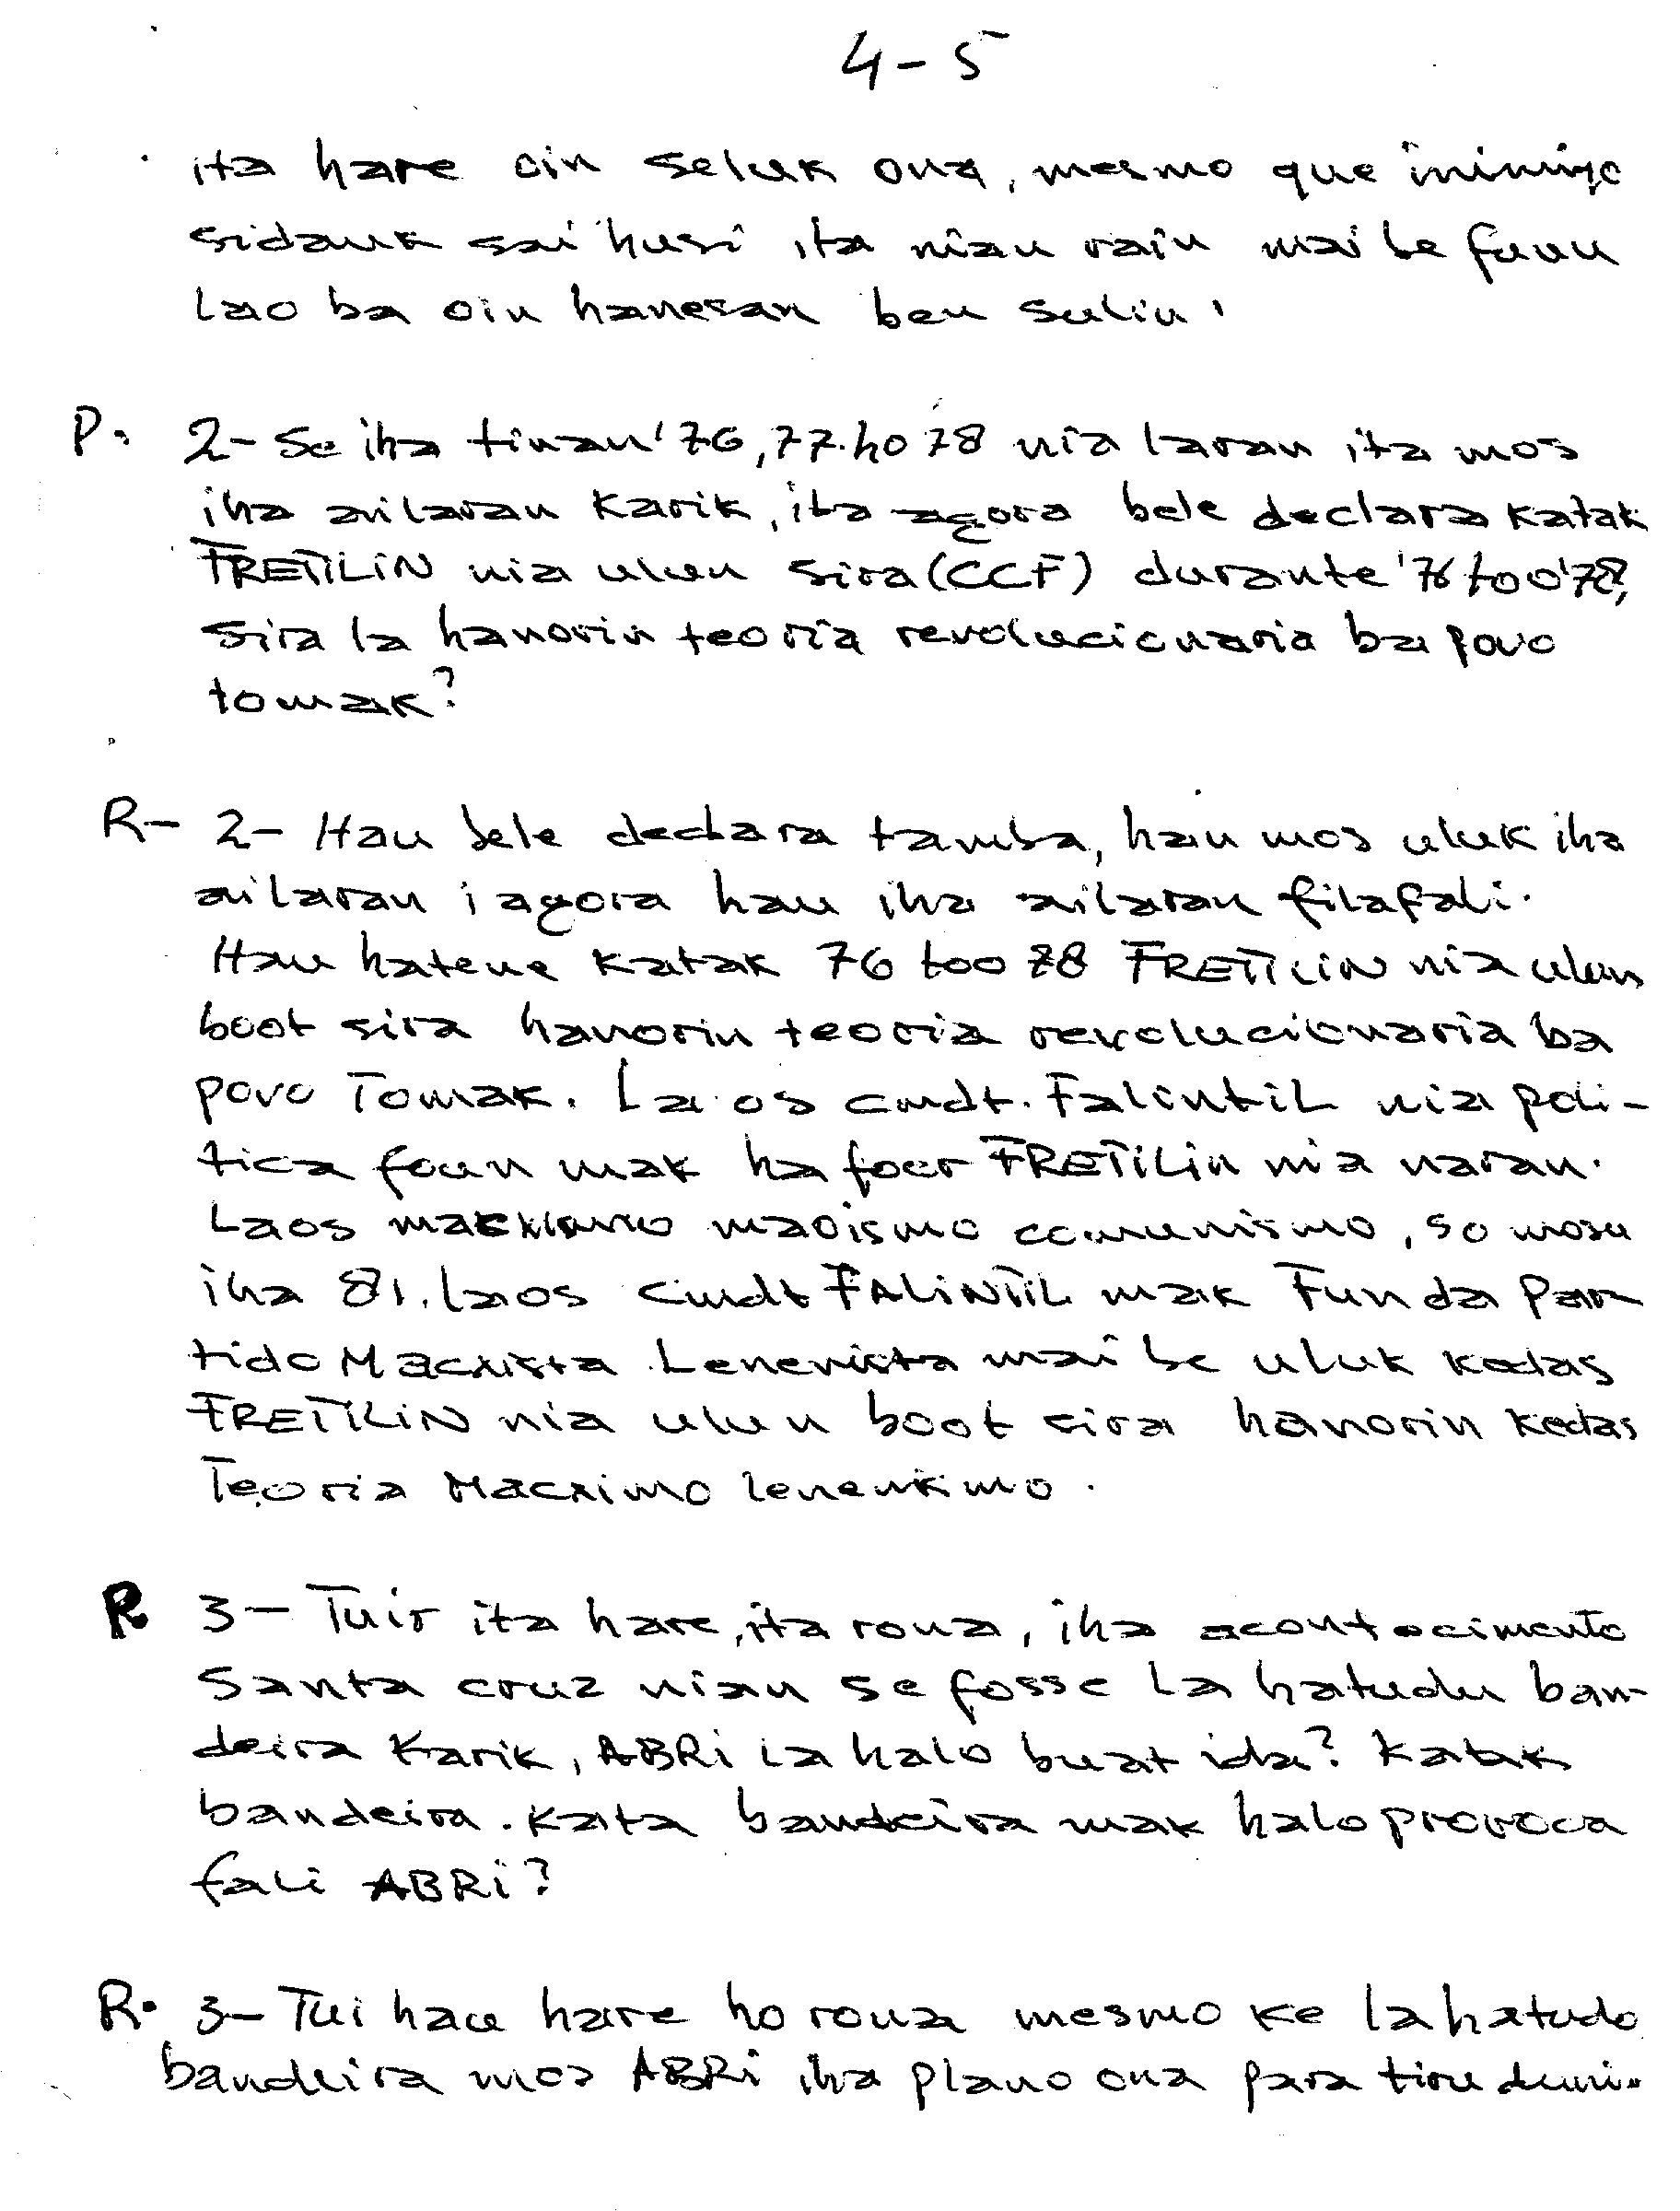 4-5
ita hare oin seluk ona, mesmo que inimigo
sidauk sai husi ita nian rain mai be funu
lao ba oin hanesan ben sulin.
P. 2- Se iha tinan '76, 77. ho 78 nia laran ita mos
iha ailaran Karik, ita agora bele declara Katak
FRETILIN nia ulun sira (CCF) durante '76 too '78,
sira la hanorin teoria revolucionaria ba povo
tomak?
R- 2- Hau bele declara tamba, hau mos uluk iha
ailaran i agora hau iha ailaran filafali.
Hau hatene Katak 76 too 78 FRETILIN nia ulun
boot sira hanorin teoria revolucionaria ba
povo Tomak. La os cmdt. Falintil nia poli-
tica foun mak ha foer FRETILIN nia naran.
Laos maoismo comunismo, so mosu
iha 81. laos Cmdt FALINTIL mak Funda Par-
tido Macxista Lenenista mai be uluk kedas
FRETILIN nia ulun boot sira hanorin kedas
Teoria Macximo lenenismo.
R 3- Tuir ita hare, ita rona, iha acontecimento
Santa cruz nian se fosse La hatudu ban-
deira Karik, ABRI la halo buat ida? Katak
bandeira. Kata bandeira mak halo provoca
fali ABRI?
R. 3- Tui hau hare ho rona mesmo ke la hatudo
bandeira mos ABRI iha plano ona para tiru demi-